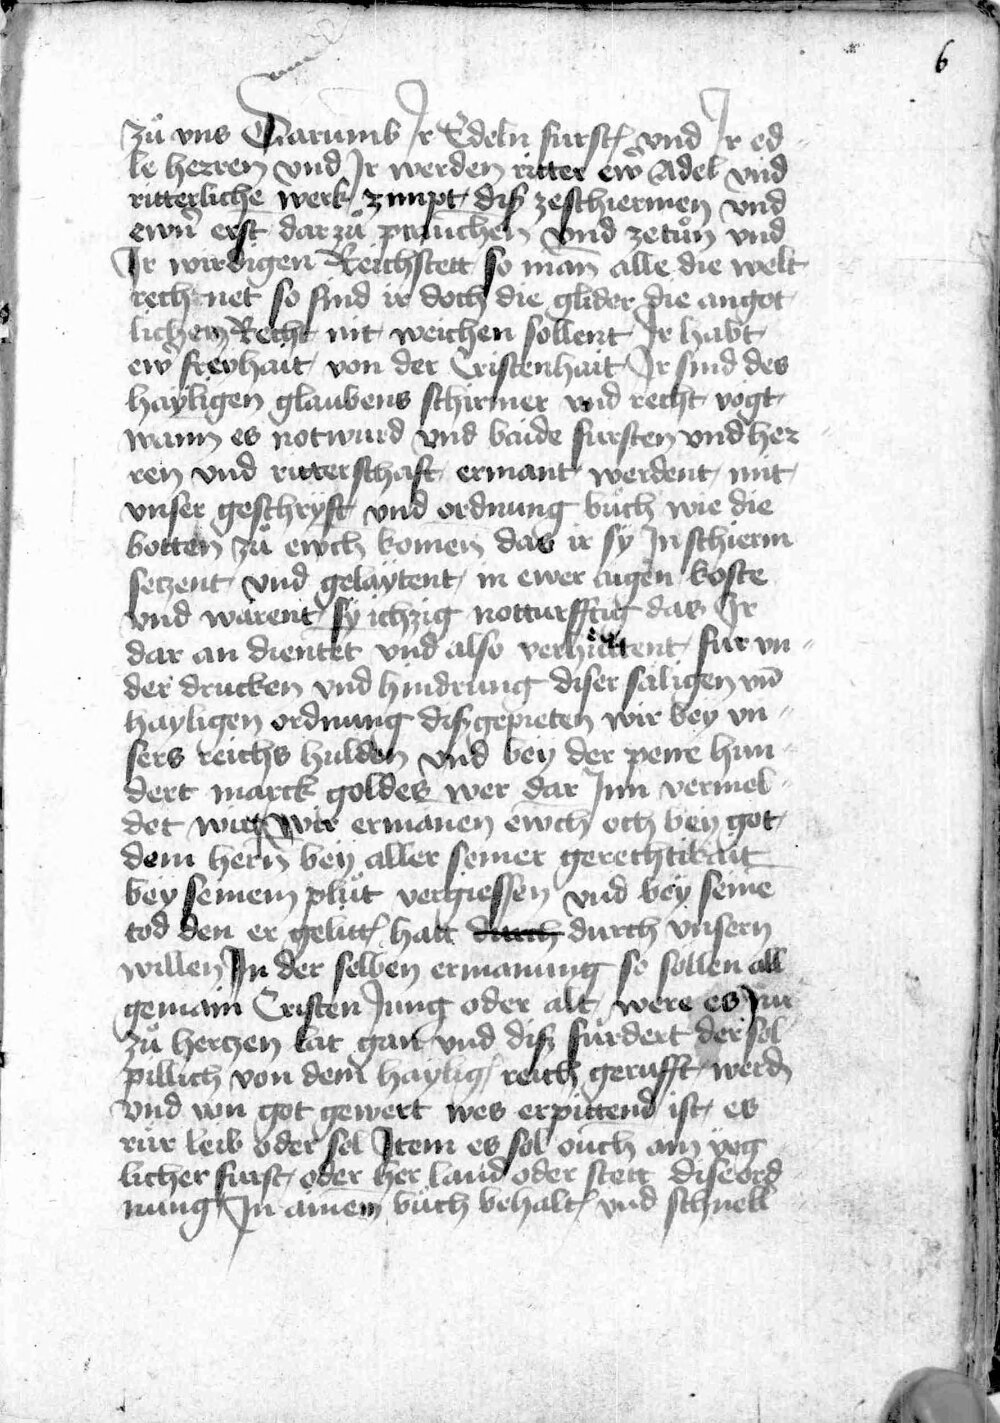 6
zů vns Darumb Ir Edeln furst̄ vnd Ir ed-
le herren vnd Ir werden ritter ew̄ Adel vnd
ritterliche werk zimpt disz zeschiermen vnd
ewn̄ erst dar zů prauchen vnd zetůn vnd
Ir wirdigen Reichstett so man̄ alle die welt
rechnet so sind ir doch die glider die an got
lichem Recht nit weichen sollent Ir habt
ew̄ freyhait von der Cristenhait Ir sind des
hayligen glaubens schirmer vnd recht vogt
wann es notwurd vnd baide fursten vnd her-
ren vnd ritterschaft ermant werdent mit
vnser geschryft vnd ordnung bůch wie die
botten zů ewch komen das ir sy In schierm
setzent vnd gelaytent in ewer aigen koste
vnd wärent sy ichzig notturfftig das Ir
dar an dientet vnd also verhüttent für vn-
der drucken vnd hindrung diser säligen vn̄
hayligen ordnung disz gepieten wir bey vn-
sers reichs hulden vnd bey der pene hun-
dert marck goldes wer dar Inn vermel-
det wirt Wir ermanen ewch och bey got
dem hern̄ bey aller seiner gerechtikait
bey seinem plůt vergiessen vnd bey seine̅
tod den er gelitt̄ hatt durch durch vnsern
willen In der selben ermanung so sollen all
gemain Cristen Jung oder alt were es Im
zů hertzen lat gan vnd disz fürdert der sol
pillich von dem hayliḡ reich gerufft werd̄
vnd vm got gewert wes er pittend ist es
rür leib oder sel Item es sol ouch ain yeg
licher furst oder her land oder stett dise ord
nung In ainem bůch behalt̄ vnd schnell